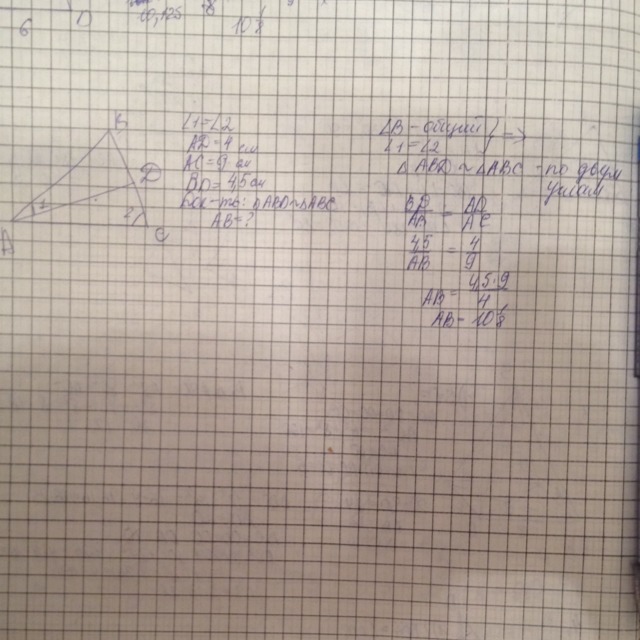 6
D
10,125
10 1/8
B
D
1
2
A
C
∠1=∠2
AD=4 см
AC=9 см
BD=4,5 см
Док-ть: △ABD~△ABC
AB=?
∠B - общий } =>
∠1=∠2
△ABD~△ABC - по двум
углам.
BD/AB = AD/AC
4,5/AB = 4/9
AB = 4,5·9/4
AB = 10 1/8